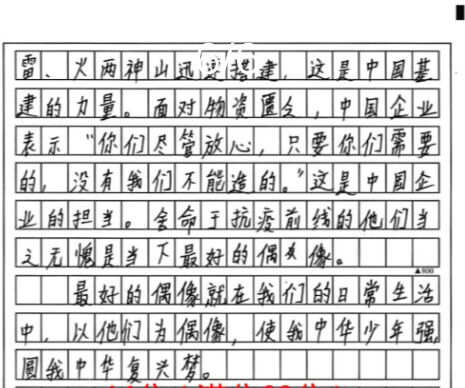 雷、火两神山迅速搭建，这是中国基
建的力量。面对物资匮乏，中国企业
表示“你们尽管放心，只要你们需要
的，没有我们不能造的。”这是中国企
业的担当。舍命于抗疫前线的他们当
之无愧是当下最好的偶像。
▲800
最好的偶像就在我们的日常生活
中，以他们为偶像，使我中华少年强，
圆我中华复兴梦。